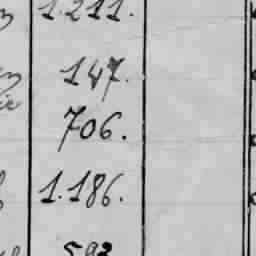 1.211.
147.
706.
1.186.
593